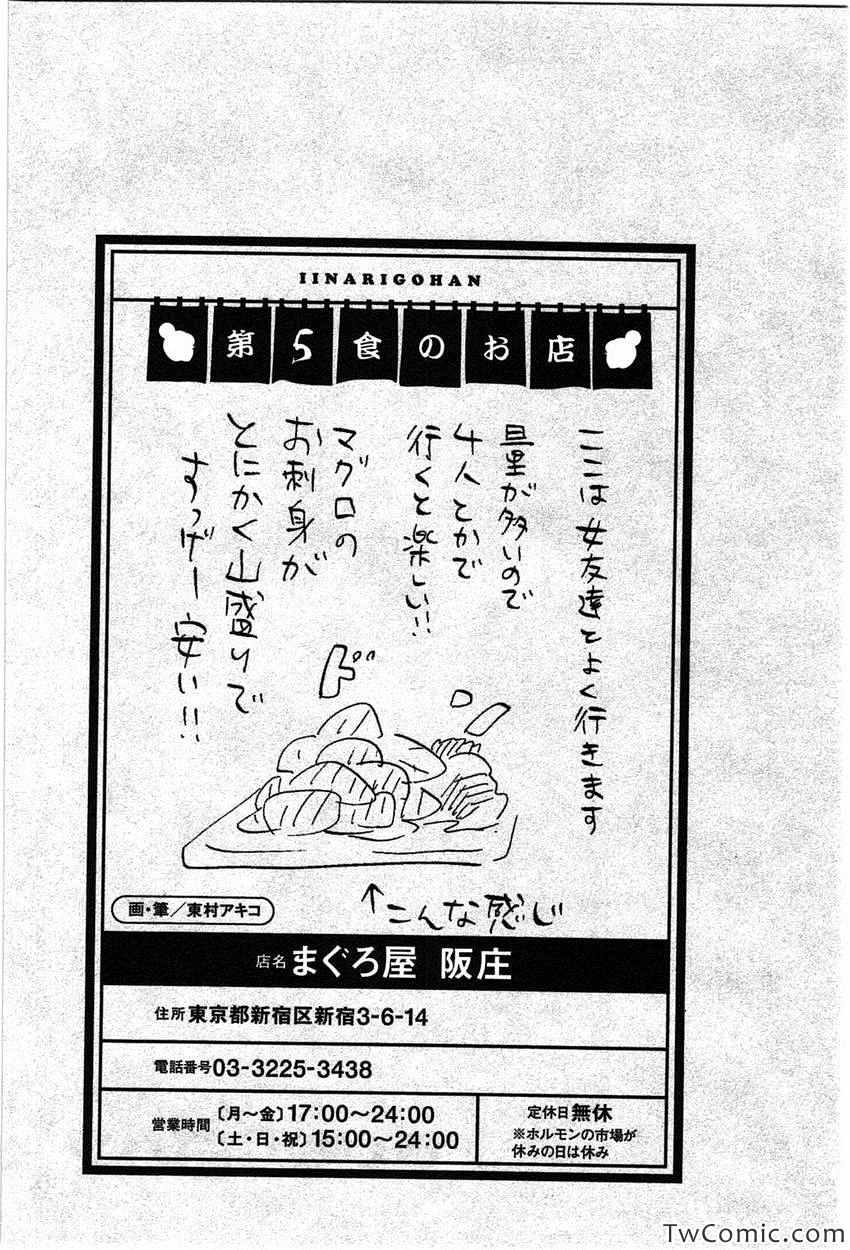 IINARIGOHAN
第5食のお店
ここは女友達とよく行きます
量が多いので
4人とかで
行くと楽しい!!
マグロの
お刺身が
とにかく山盛りで
すっげー安い!!
ド
↑こんな感じ
画・筆／東村アキコ
店名 まぐろ屋 阪庄
住所 東京都新宿区新宿3-6-14
電話番号 03-3225-3438
営業時間 〔月〜金〕17:00〜24:00
〔土・日・祝〕15:00〜24:00
定休日 無休
※ホルモンの市場が
休みの日は休み
TwComic.com